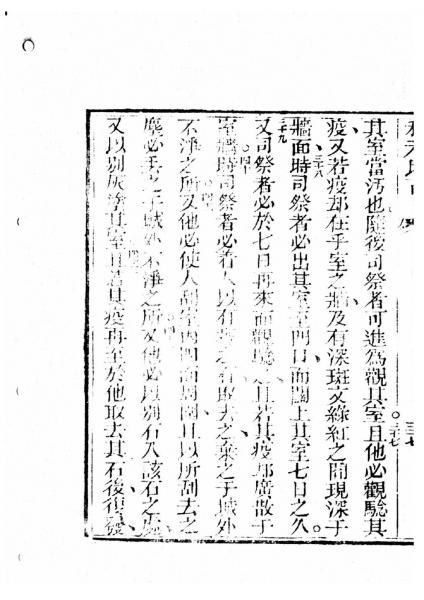 三十七
其室當汚也隨後司祭者可進爲觀其室且他必觀驗其
三十八
疫又若疫却在乎室之牆及有深斑文綠紅之間現深于
三十九
牆面時司祭者必出其室至門口而關上其室七日之久
又司祭者必於七日再來而觀驗之且若其疫却廣散于
四十
室牆時司祭者必着人以有疫之石取去之棄之于城外
四一
不淨之所又他必使人刮室內四面周圍且以所刮去之
塵必弃之于城外不淨之所又他必以別石入該石之處
又以別灰塗其室且若其疫再至於他取去其石後復發